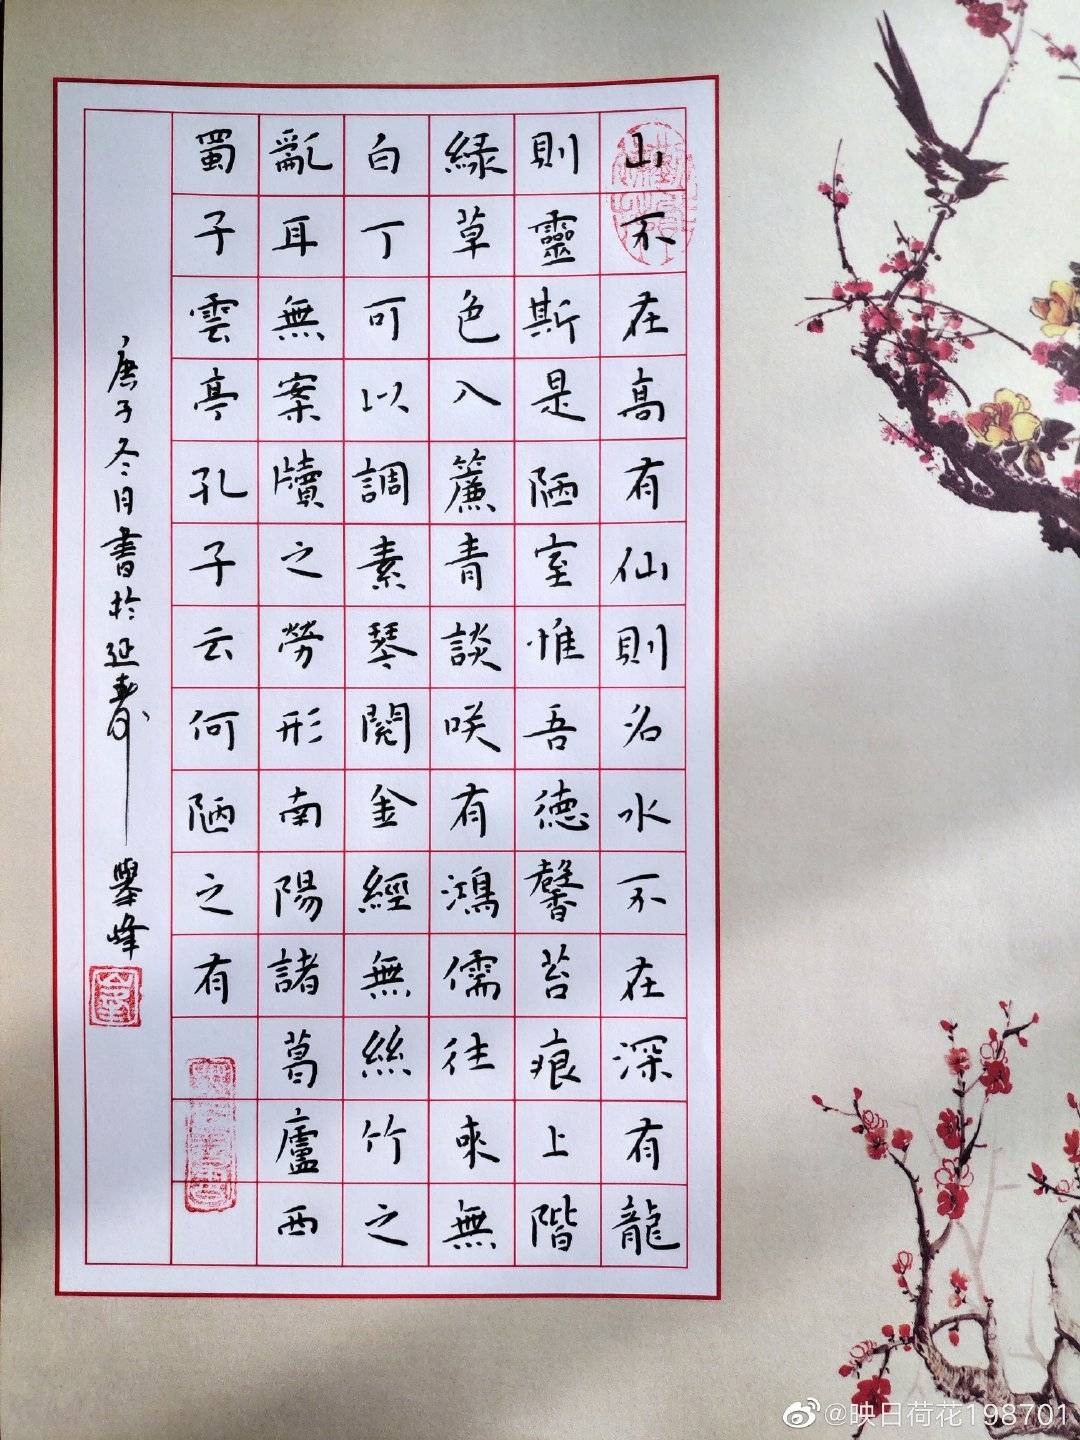 山不在高有仙則名水不在深有龍
則靈斯是陋室惟吾德馨苔痕上階
緑草色入簾青談咲有鴻儒往來無
白丁可以調素琴閱金經無絲竹之
亂耳無案牘之勞形南陽諸葛廬西
蜀子雲亭孔子云何陋之有
庚子冬月書於延壽舉峰
@映日荷花198701